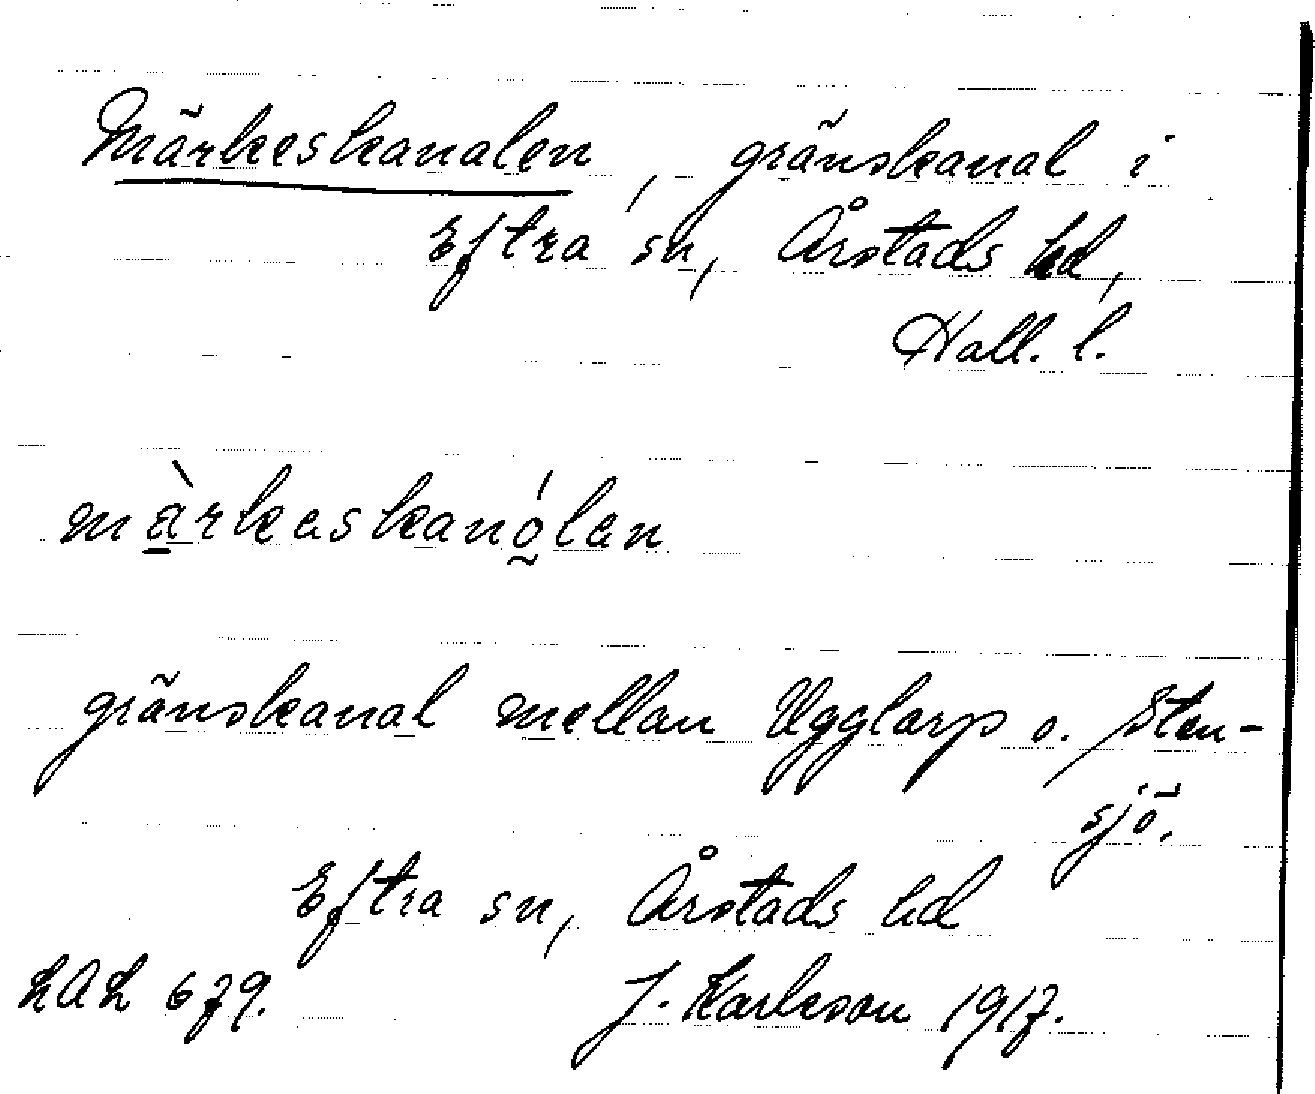 Märkeskanalen, gränskanal i
Eftra sn, Årstads hd,
Hall. l.
màrkeskanólen
gränskanal mellan Ugglarp o. Sten-
sjö.
Eftra sn, Årstads hd
LAL 679. J. Karlsson 1917.